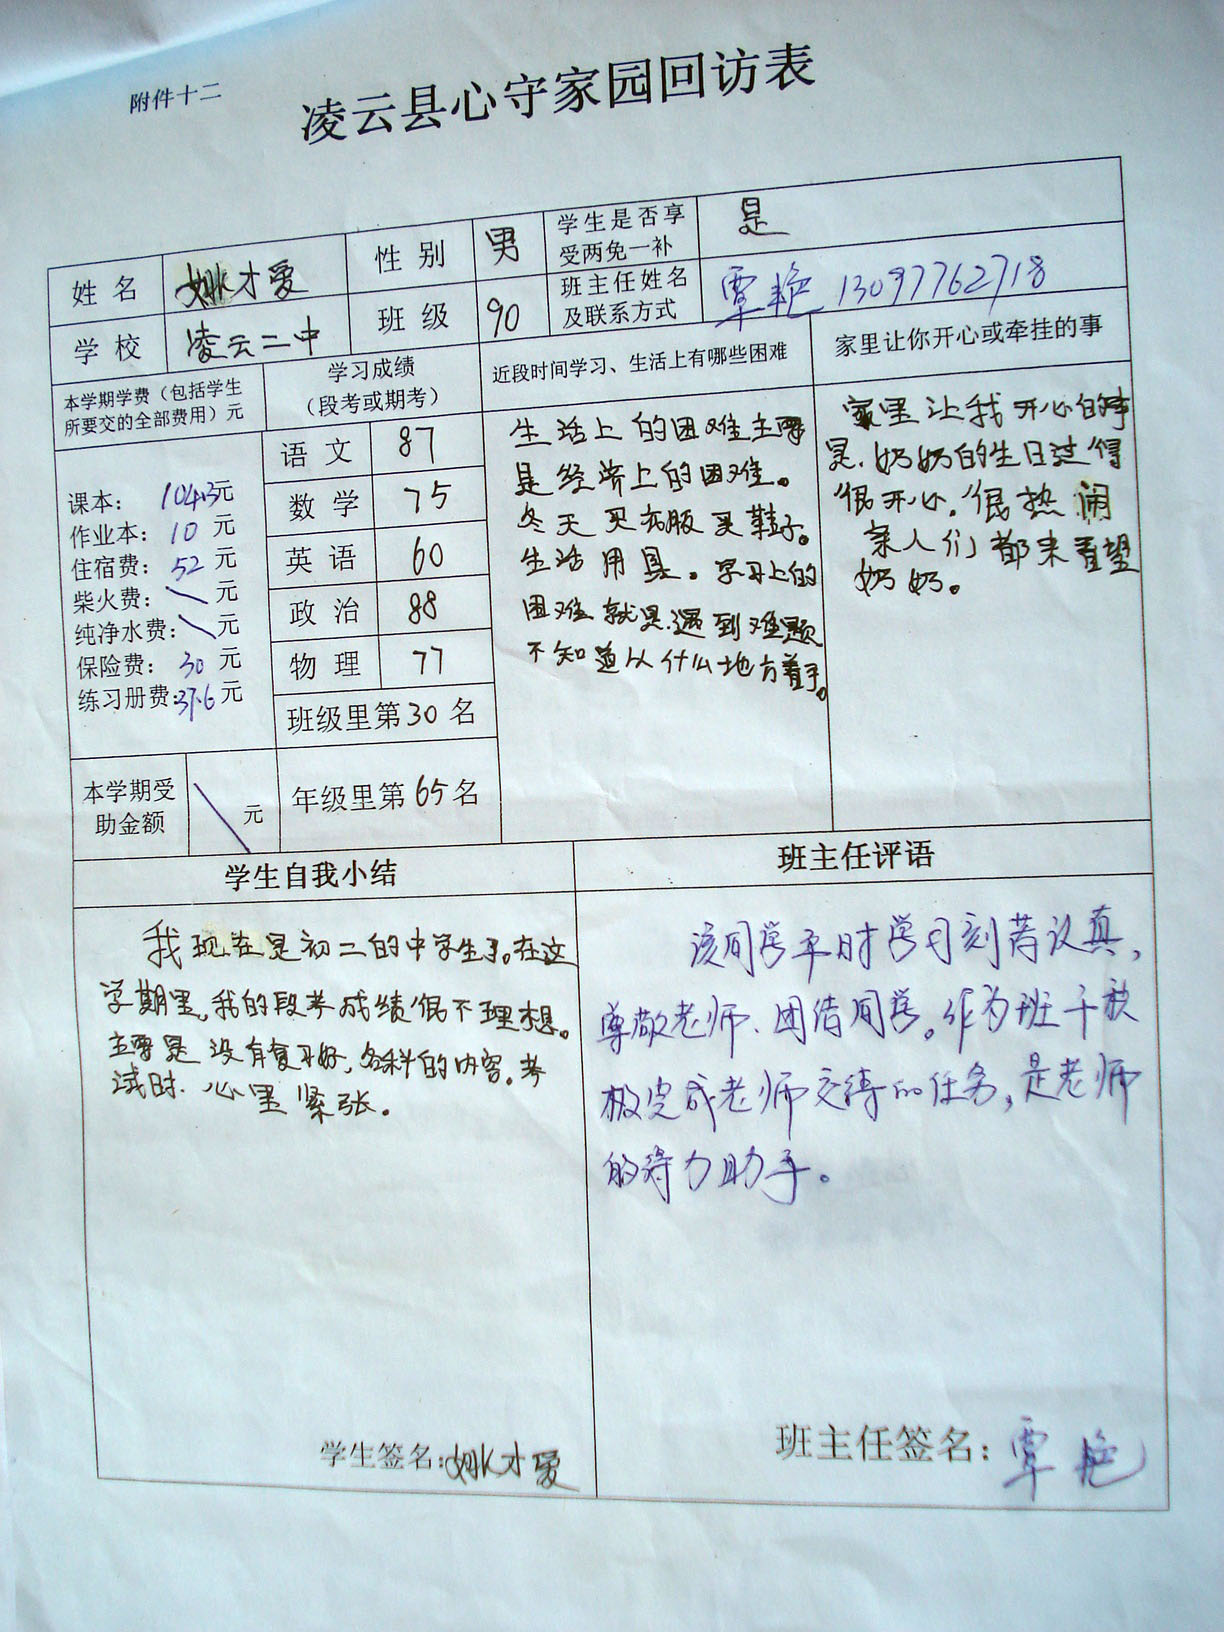 附件十二
凌云县心守家园回访表
姓名 姚才爱 性别 男 学生是否享受两免一补 是
学校 凌云二中 班级 90 班主任姓名及联系方式 覃艳 13097762718
本学期学费（包括学生所要交的全部费用）元
学习成绩（段考或期考）
近段时间学习、生活上有哪些困难
家里让你开心或牵挂的事
课本： 104.3元
作业本：10 元
住宿费：52 元
柴火费：\ 元
纯净水费：\ 元
保险费：30 元
练习册费:37.6 元
语文 87
数学 75
英语 60
政治 88
物理 77
班级里第30名
年级里第65名
本学期受助金额 \ 元
生活上的困难主要
是经济上的困难。
冬天买衣服买鞋子。
生活用具。学习上的
困难就是遇到难题
不知道从什么地方着手。
家里让我开心的事
是.奶奶的生日过得
很开心.很热闹
亲人们都来看望
奶奶。
学生自我小结
我现在是初二的中学生了。在这
学期里，我的段考成绩很不理想。
主要是没有复习好，各科的内容。考
试时.心里紧张。
学生签名：姚才爱
班主任评语
该同学平时学习刻苦认真，
尊敬老师、团结同学。作为班干积
极完成老师交待的任务，是老师
的得力助手。
班主任签名：覃艳